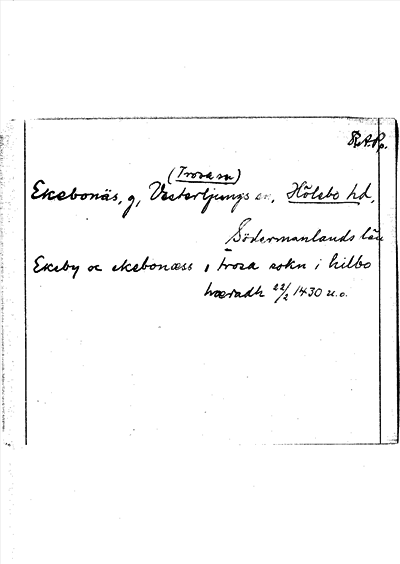 R.A.P.
(Trosa sn)
Ekebonäs, g, Västerljungs sn, Hölebo hd,
Södermanlands län
Ekeby oc ekebonæss i trosa sokn i hilbo
hæradh 22/2 1430 u.o.